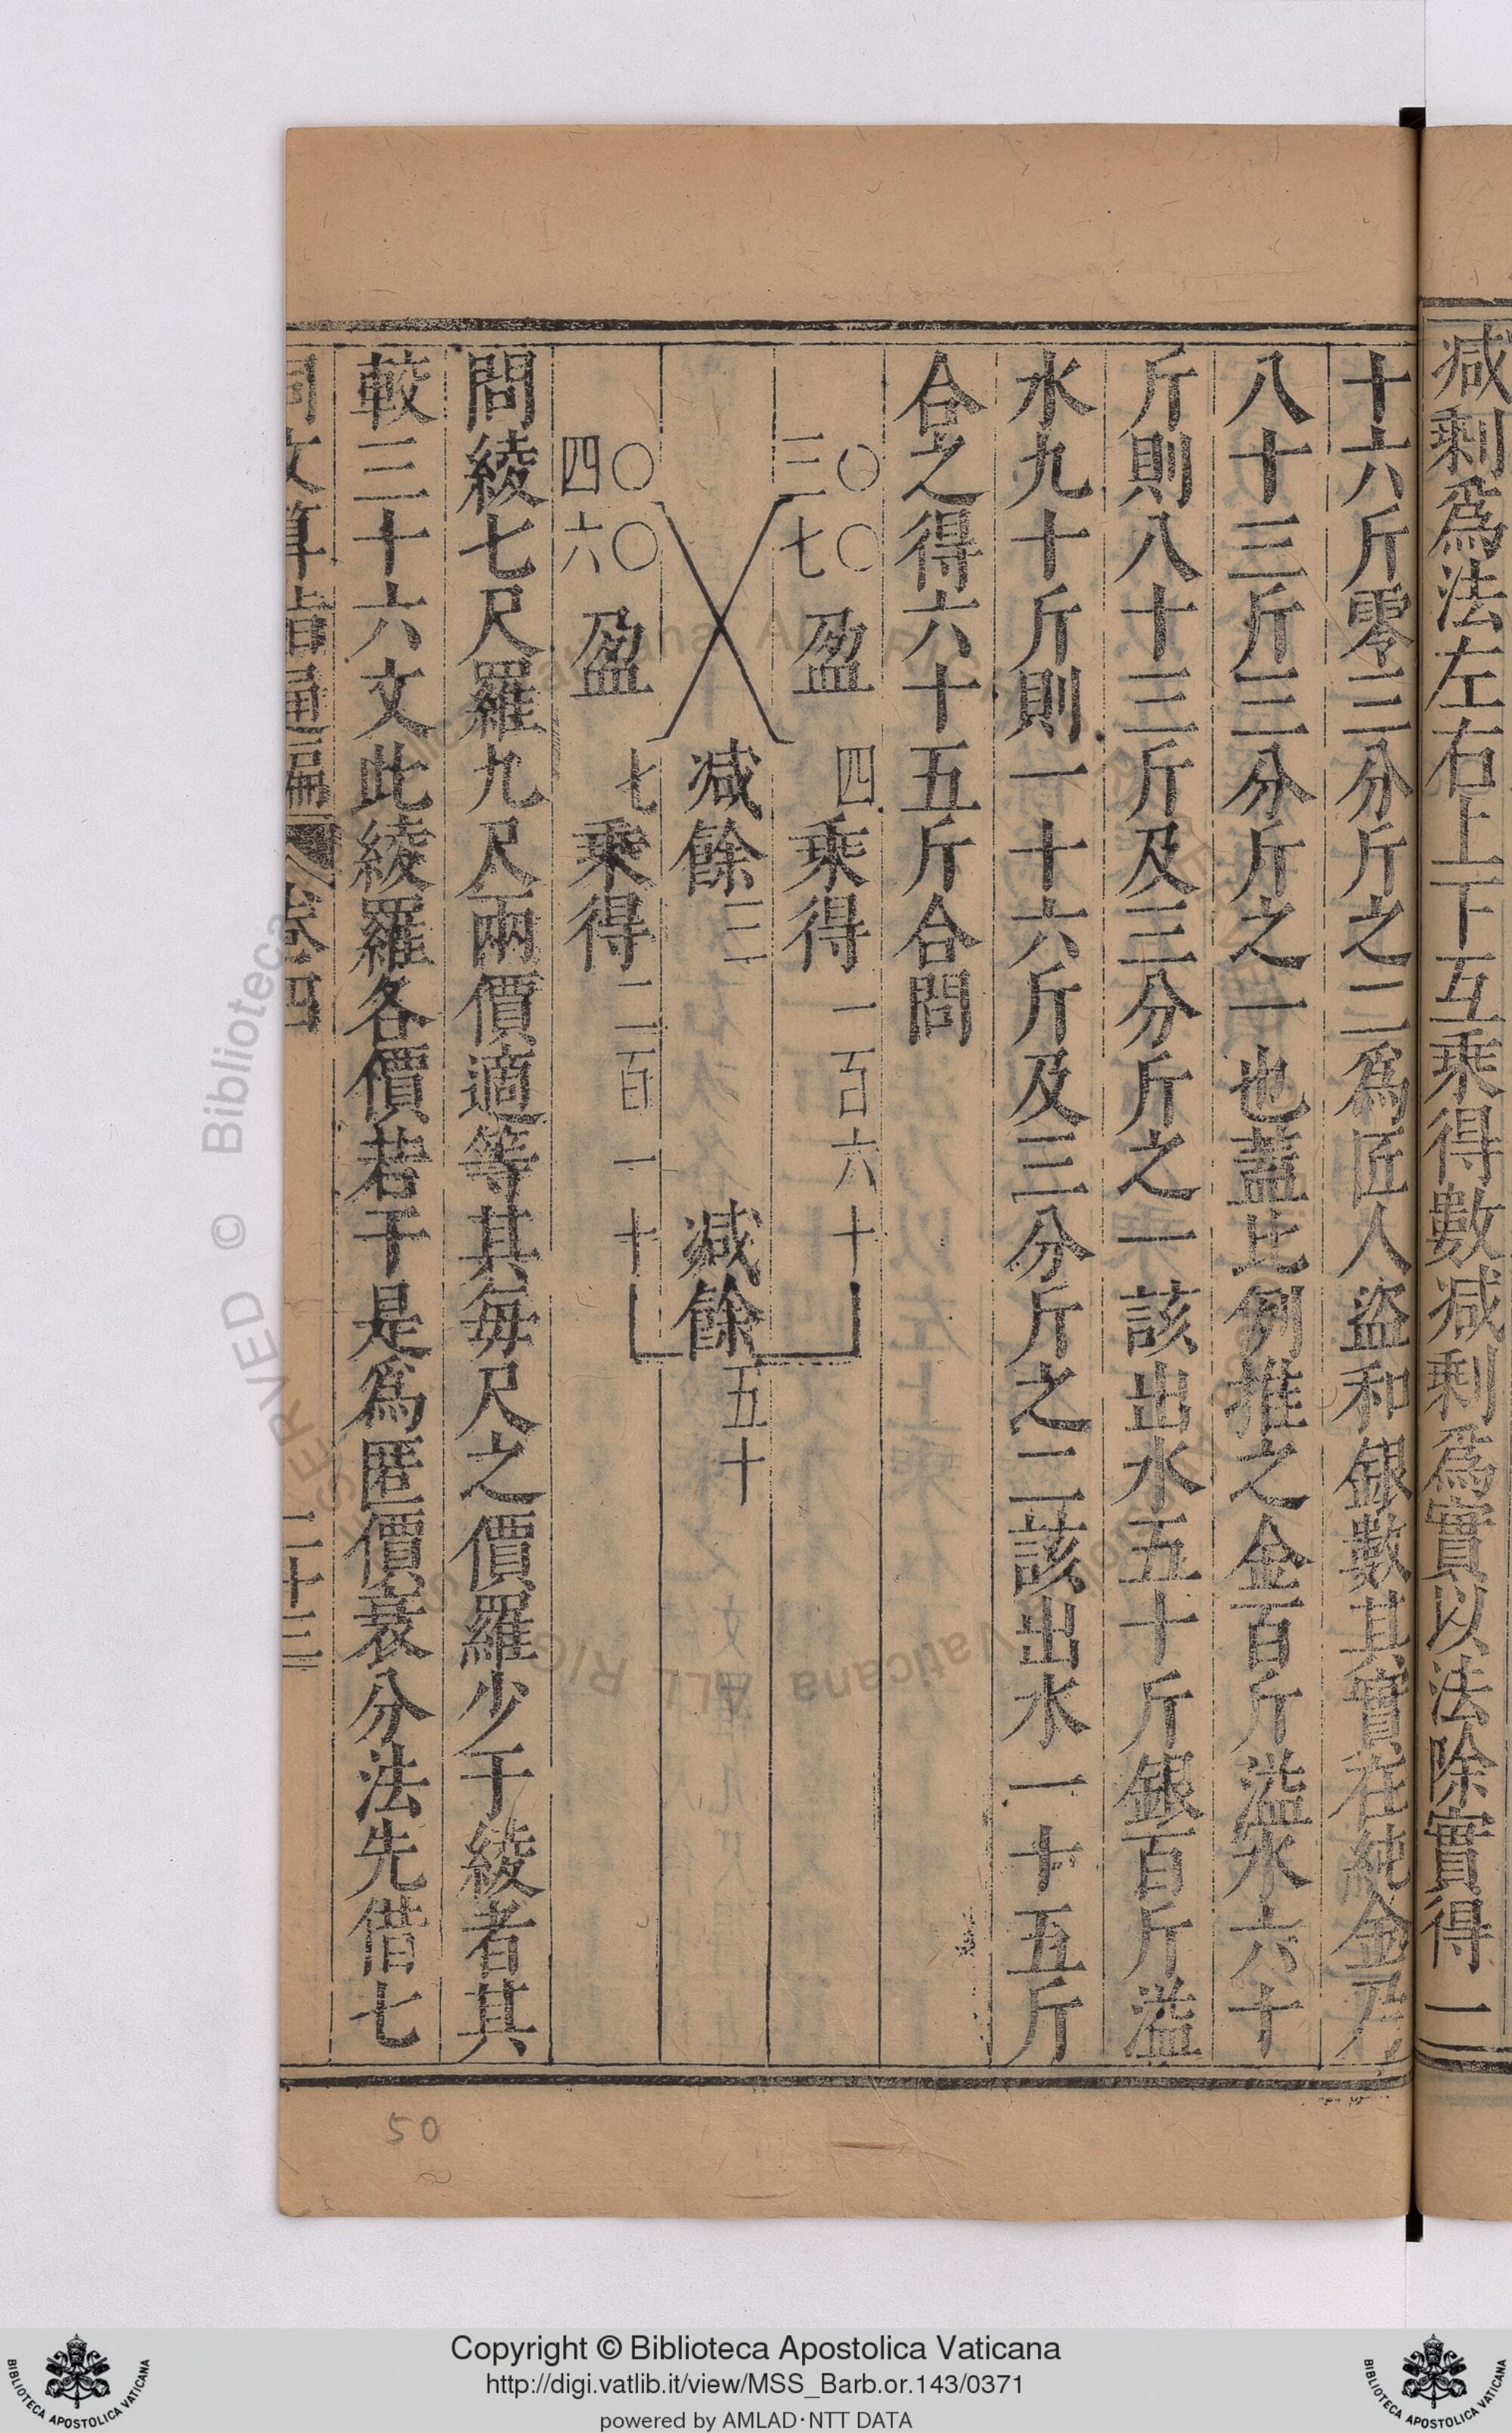 減剩爲法左右上下互乘得數減剩爲實以法除實得一
十六斤零三分斤之二爲匠人盜和銀數其實在純金乃
八十三斤三分斤之一也蓋比例推之金百斤溢水六十
斤則八十三斤及三分斤之一該出水五十斤銀百斤溢
水九十斤則一十六斤及三分斤之二該出水一十五斤
合之得六十五斤合問
三〇 七〇 盈 四 乘得 一百六十
減餘 三 減餘 五十
四〇 六〇 盈 七 乘得 二百一十
問綾七尺羅九尺兩價適等其每尺之價羅少于綾者其
較三十六文此綾羅各價若干是爲匿價衰分法先借七
同文算指通編 卷四 二十三
50
© Biblioteca Apostolica Vaticana ALL RIGHTS RESERVED
Copyright © Biblioteca Apostolica Vaticana
http://digi.vatlib.it/view/MSS_Barb.or.143/0371
powered by AMLAD·NTT DATA
BIBLIOTECA APOSTOLICA VATICANA
BIBLIOTECA APOSTOLICA VATICANA